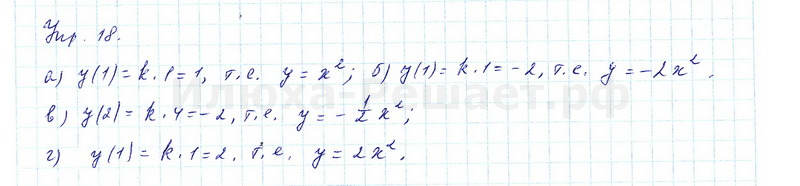 Упр. 18.
а) y(1) = k·1 = 1, т.е. y = x²; б) y(1) = k·1 = -2, т.е. y = -2x².
в) y(2) = k·4 = -2, т.е. y = -1/2 x²;
г) y(1) = k·1 = 2. т.е. y = 2x².
Илюха-решает.рф